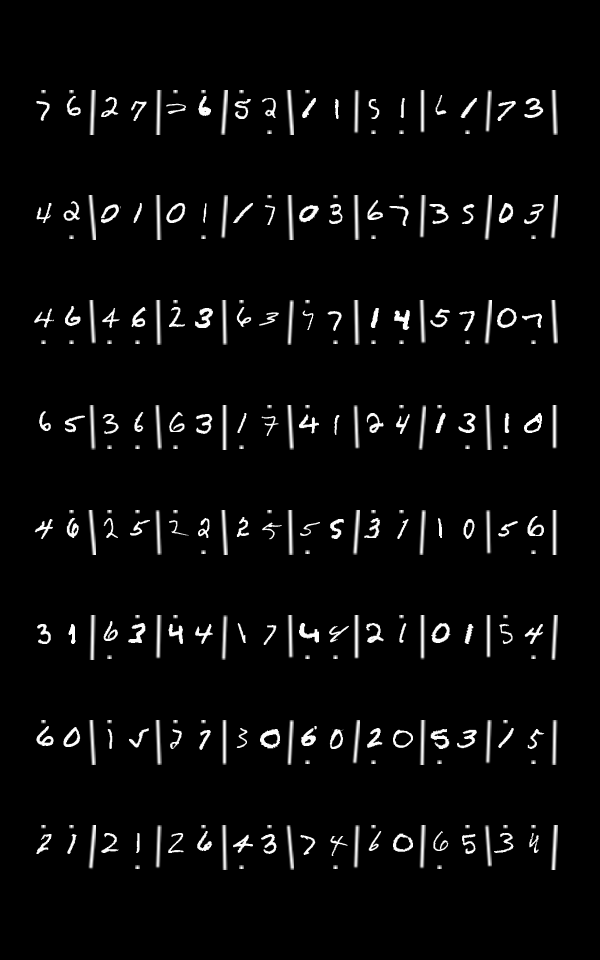 7̇ 6̇ | 2 7 | 2̇ 6̇ | 5̇ 2̣ | 1̇ 1 | 5̣ 1̣ | 6 1̣ | 7 3 |
4 2̣ | 0 1 | 0 1̣ | 1 7̇ | 0 3̇ | 6̣ 7̇ | 3 5 | 0 3̣ |
4̣ 6̣ | 4̣ 6̣ | 2̇ 3 | 6̇ 3 | 4̇ 7̣ | 1̣ 4̣ | 5 7̣ | 0 7̣ |
6 5 | 3̣ 6̣ | 6̣ 3 | 1̣ 7̇ | 4̇ 1 | 2 4̇ | 1̇ 3̣ | 1̣ 0 |
4 6̇ | 2̇ 5̇ | 2̇ 2̣ | 2 5̇ | 5̣ 5 | 3̇ 1̇ | 1 0 | 5 6̣ |
3 1 | 6̣ 3̇ | 4̇ 4 | 1 7 | 4̣ 4̣ | 2 1̇ | 0 1 | 5̇ 4̣ |
6̇ 0 | 1̇ 5 | 7̇ 7̇ | 3 0 | 6̇ 0 | 2̣ 0 | 5̣ 3 | 1̇ 5̣ |
2̇ 1̇ | 2 1̣ | 2 6̇ | 4̣ 3̇ | 7 4̣ | 6̇ 0 | 6̣ 5 | 3̇ 4̇ |